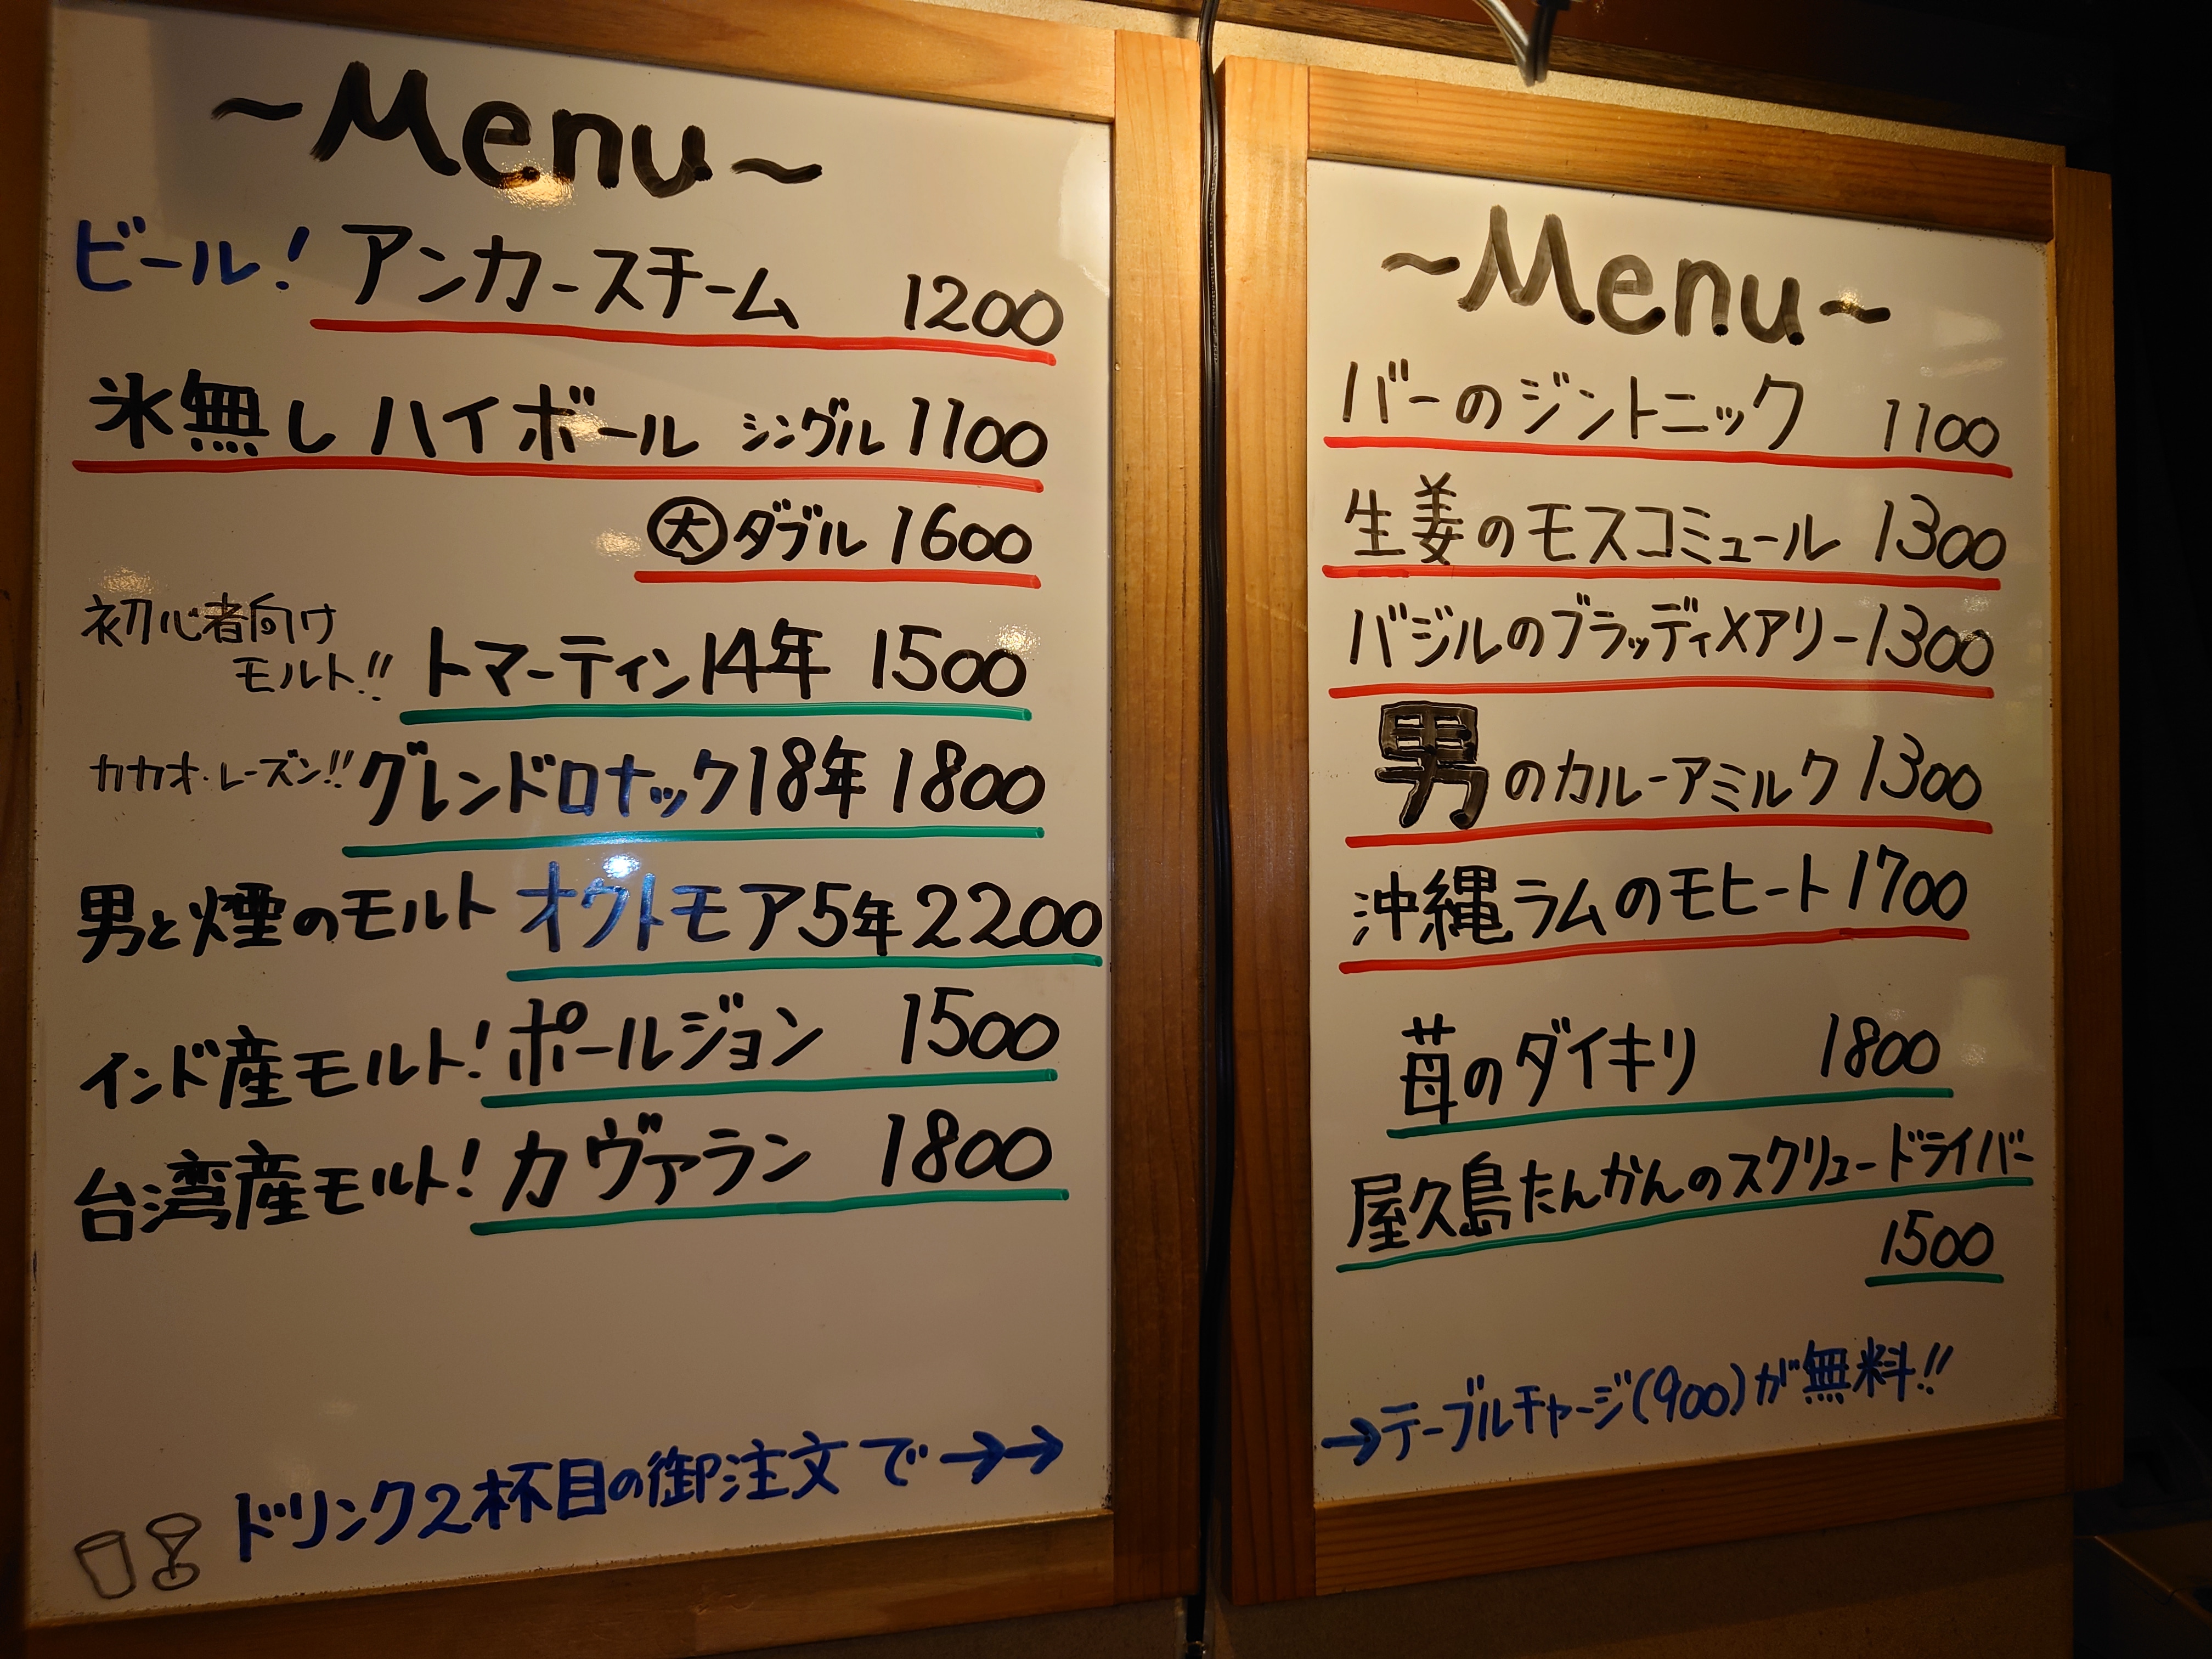 ~Menu~
ビール! アンカースチーム 1200
氷無し ハイボール シングル 1100
大 ダブル 1600
初心者向け
モルト!! トマーティン14年 1500
カカオ・レーズン!! グレンドロナック18年 1800
男と煙のモルト オクトモア5年 2200
インド産モルト! ポールジョン 1500
台湾産モルト! カヴァラン 1800
ドリンク2杯目の御注文で→→
~Menu~
バーのジントニック 1100
生姜のモスコミュール 1300
バジルのブラッディメアリー 1300
男のカルーアミルク 1300
沖縄ラムのモヒート 1700
苺のダイキリ 1800
屋久島たんかんのスクリュードライバー
1500
→テーブルチャージ(900)が無料!!